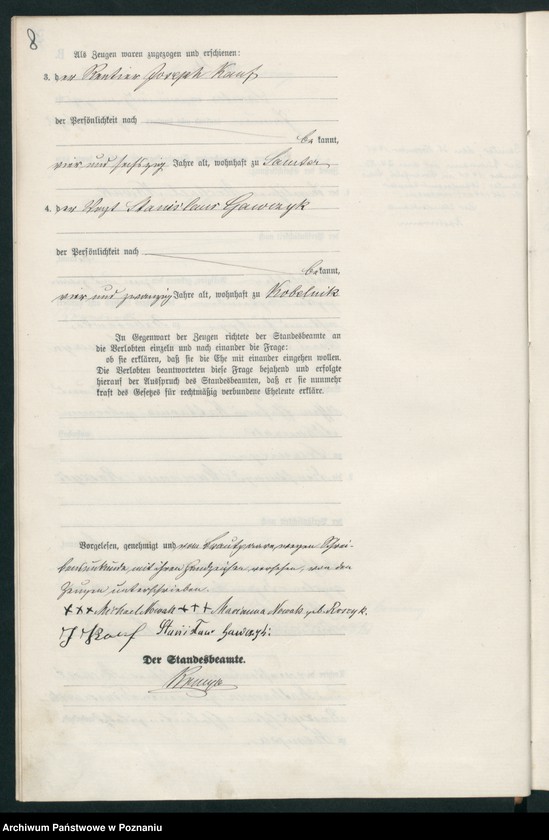 8
Als Zeugen waren zugezogen und erschienen:
3. der Rentier Joseph Kauf
der Persönlichkeit nach
be kannt,
vier und sechszig Jahre alt, wohnhaft zu Samter
4. der Vogt Stanislaus Gawczyk
der Persönlichkeit nach
be kannt,
vier und zwanzig Jahre alt, wohnhaft zu Kobelnik
In Gegenwart der Zeugen richtete der Standesbeamte an
die Verlobten einzeln und nach einander die Frage:
ob sie erklären, daß sie die Ehe mit einander eingehen wollen.
Die Verlobten beantworteten diese Frage bejahend und erfolgte
hierauf der Ausspruch des Standesbeamten, daß er sie nunmehr
kraft des Gesetzes für rechtmäßig verbundene Eheleute erkläre.
Vorgelesen, genehmigt und vom Brautpaare wegen Schrei-
bensunkunde mit ihren Handzeichen versehen, von den
Zeugen unterschrieben.
+++ Michael Nowak +++ Marianna Nowak geb.
J Kauf Stanisław
Der Standesbeamte.
Archiwum Państwowe w Poznaniu